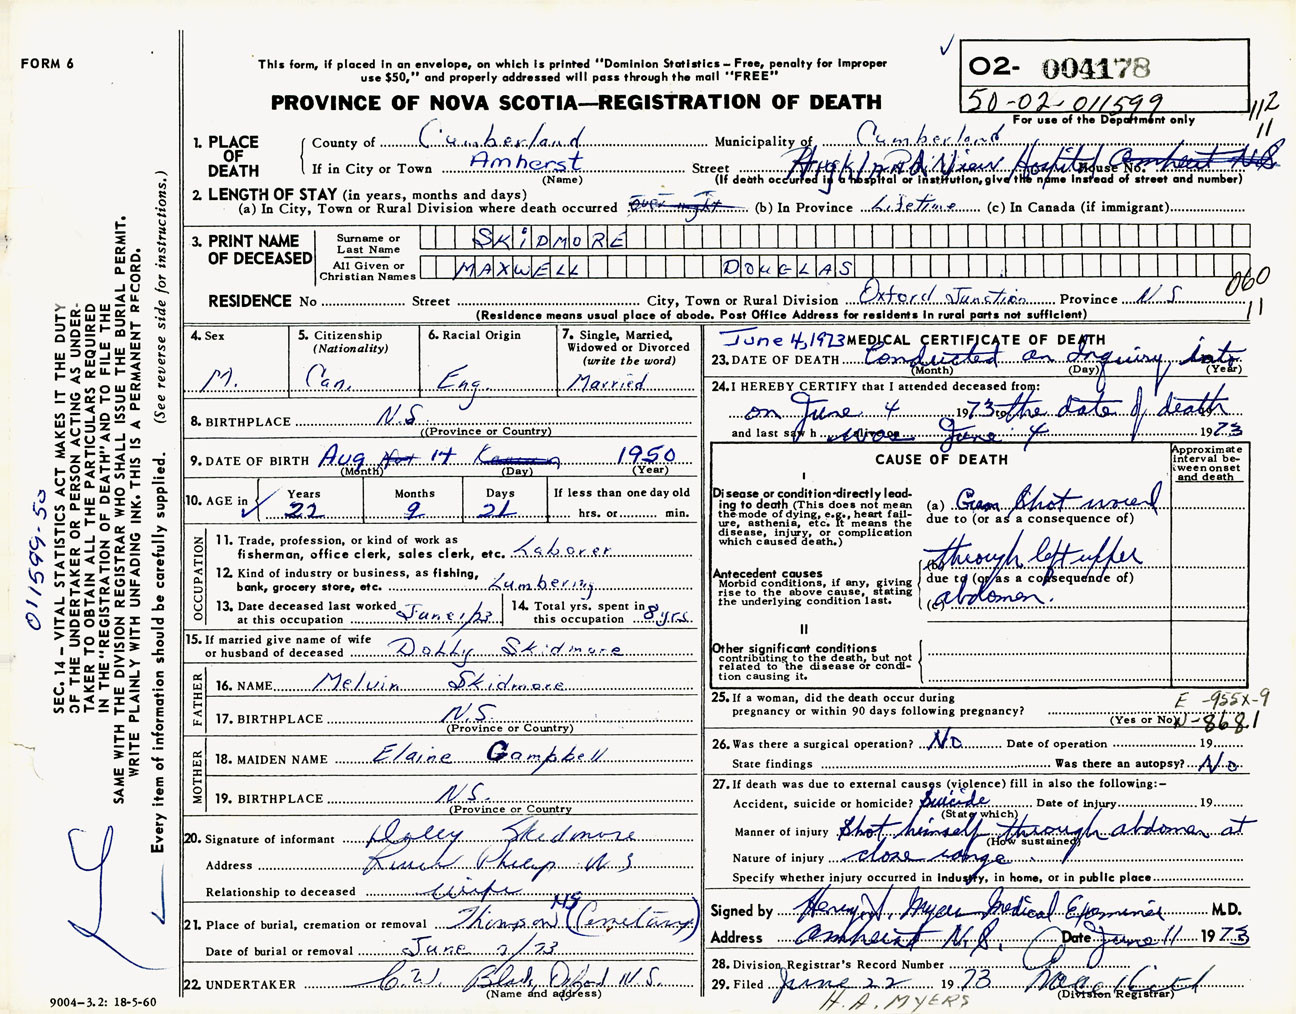 FORM 6
This form, if placed in an envelope, on which is printed "Dominion Statistics – Free, penalty for improper
use $50," and properly addressed will pass through the mail "FREE"
PROVINCE OF NOVA SCOTIA—REGISTRATION OF DEATH
O2- 004178
50-02-011599
For use of the Department only
112
11
1. PLACE OF DEATH
County of Cumberland Municipality of Cumberland
If in City or Town Amherst Street Highland View Hospital House No. Amherst N.S.
(Name) (If death occurred in a hospital or institution, give the name instead of street and number)
2. LENGTH OF STAY (in years, months and days)
(a) In City, Town or Rural Division where death occurred over night (b) In Province Lifetime (c) In Canada (if immigrant)
3. PRINT NAME OF DECEASED
Surname or Last Name SKIDMORE
All Given or Christian Names MAXWELL DOUGLAS
060
11
RESIDENCE No Street City, Town or Rural Division Oxford Junction Province N.S.
(Residence means usual place of abode. Post Office Address for residents in rural parts not sufficient)
4. Sex M.
5. Citizenship (Nationality) Can.
6. Racial Origin Eng.
7. Single, Married, Widowed or Divorced (write the word) Married
8. BIRTHPLACE N.S.
((Province or Country)
9. DATE OF BIRTH Aug 14 1950
(Month) (Day) (Year)
10. AGE in Years 22 Months 9 Days 21 If less than one day old hrs. or min.
OCCUPATION
11. Trade, profession, or kind of work as
fisherman, office clerk, sales clerk, etc. Laborer
12. Kind of industry or business, as fishing,
bank, grocery store, etc. Lumbering
13. Date deceased last worked
at this occupation June 1/73
14. Total yrs. spent in
this occupation 8 yrs.
15. If married give name of wife
or husband of deceased Dolly Skidmore
FATHER
16. NAME Melvin Skidmore
17. BIRTHPLACE N.S.
(Province or Country)
MOTHER
18. MAIDEN NAME Elaine Campbell
19. BIRTHPLACE N.S.
(Province or Country
20. Signature of informant Dolley Skidmore
Address River Philip N S
Relationship to deceased Wife
21. Place of burial, cremation or removal Thomson NS (Cemetary)
Date of burial or removal June 7/73
22. UNDERTAKER C.W. Black, Oxford N.S.
(Name and address)
June 4, 1973 MEDICAL CERTIFICATE OF DEATH
23. DATE OF DEATH Conducted an Inquiry into
(Month) (Day) (Year)
24. I HEREBY CERTIFY that I attended deceased from:
on June 4 1973 to the date of death 19
and last saw h alive on was June 4 1973
CAUSE OF DEATH
Approximate interval between onset and death
I
Disease or condition directly leading to death (This does not mean the mode of dying, e.g., heart failure, asthenia, etc. It means the disease, injury, or complication which caused death.)
(a) Gun Shot wound
due to (or as a consequence of)
Antecedent causes
Morbid conditions, if any, giving rise to the above cause, stating the underlying condition last.
(b) through left upper
due to (or as a consequence of)
(c) abdomen.
II
Other significant conditions
contributing to the death, but not related to the disease or condition causing it.
25. If a woman, did the death occur during
pregnancy or within 90 days following pregnancy?
(Yes or No)
E -955X-9
N-8681
26. Was there a surgical operation? No Date of operation 19
State findings Was there an autopsy? No
27. If death was due to external causes (violence) fill in also the following:–
Accident, suicide or homicide? Suicide Date of injury 19
(State which)
Manner of injury Shot himself through abdomen at
(How sustained)
Nature of injury close range
Specify whether injury occurred in industry, in home, or in public place
Signed by Henry A. Myers Medical Examiner M.D.
Address Amherst N.S. Date June 11 1973
28. Division Registrar's Record Number
29. Filed June 22 1973
(Division Registrar)
H.A. MYERS
SEC. 14 – VITAL STATISTICS ACT MAKES IT THE DUTY
OF THE UNDERTAKER OR PERSON ACTING AS UNDER-
TAKER TO OBTAIN ALL THE PARTICULARS REQUIRED
IN THE "REGISTRATION OF DEATH" AND TO FILE THE
SAME WITH THE DIVISION REGISTRAR WHO SHALL ISSUE THE BURIAL PERMIT.
WRITE PLAINLY WITH UNFADING INK. THIS IS A PERMANENT RECORD.
Every item of information should be carefully supplied. (See reverse side for instructions.)
011599-50
9004-3.2: 18-5-60